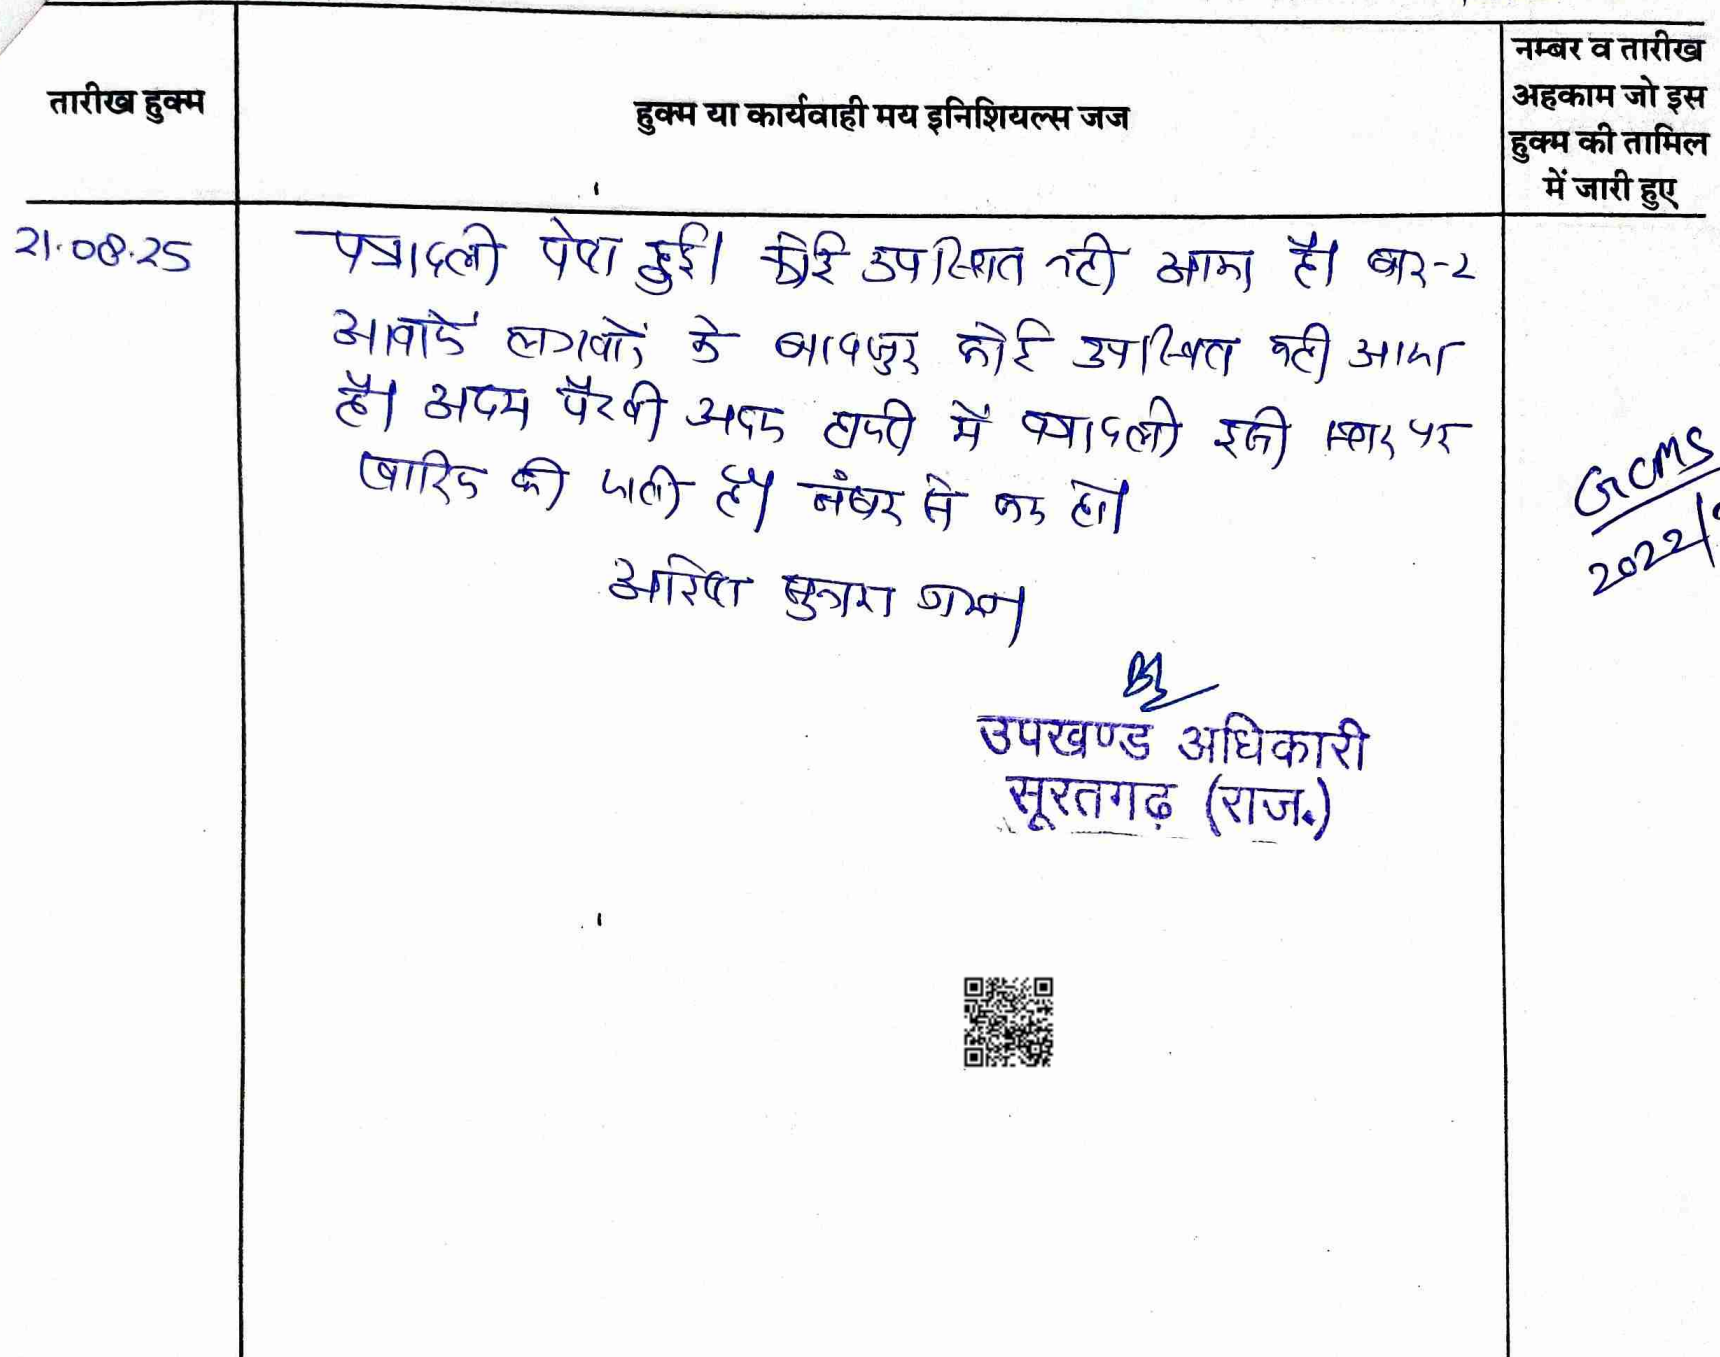 तारीख हुक्म
हुक्म या कार्यवाही मय इनिशियल्स जज
नम्बर व तारीख
अहकाम जो इस
हुक्म की तामिल
में जारी हुए
21.08.25
पत्रावली पेश हुई। कोई उपस्थित नही आया है। बार-2
आवाजें लगवाने के बावजुद कोई उपस्थित नही आया
है। अदम पैरवी अदम हाजरी में पत्रावली इसी स्तर पर
खारिज की जाती है। नंबर से कम हो।
आदेश सुनाया गया।
उपखण्ड अधिकारी
सूरतगढ़ (राज.)
GCMS
2022/